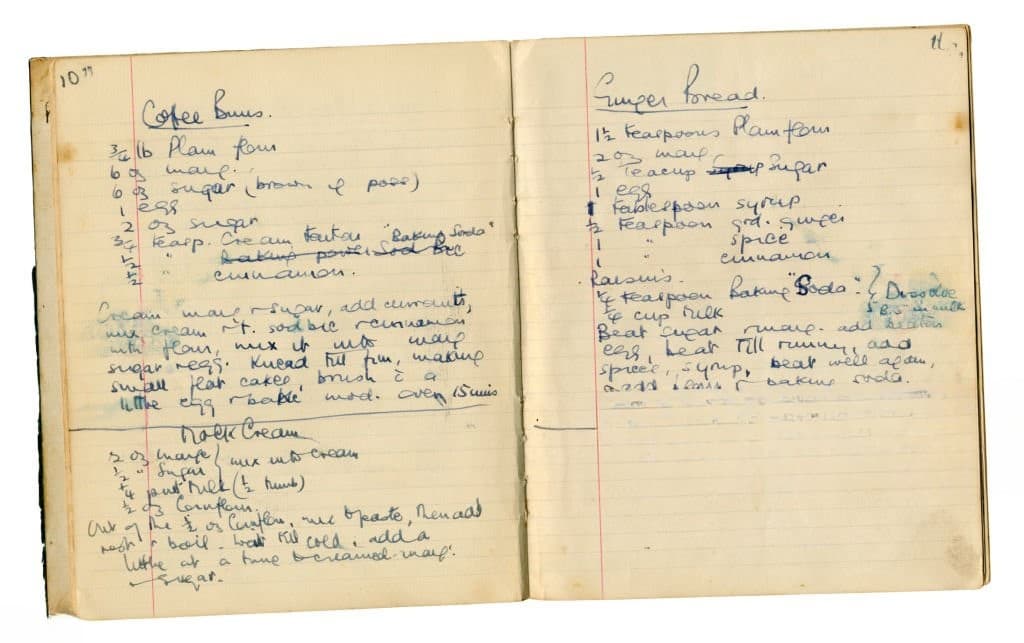 10
Coffee Buns.
3/4 lb Plain flour
6 oz marg.
6 oz sugar (brown if poss)
1 egg
2 oz sugar
3/4 teasp. Cream Tartar "Baking Soda"
1/2 " Baking powder Sod Bic
1/2 cinnamon.
Cream marg & sugar, add currants,
mix cream of t. sod bic & cinnamon
into flour, mix it into marg
sugar & egg. Knead till firm, making
small flat cakes, brush c̄ a
little egg & bake mod. oven 15 mins
Mock Cream
2 oz marge } mix into cream
1/2 " Sugar
1/4 pint Milk (1/2 Tumb)
1/2 oz Cornflour.
Out of the 1/2 oz Cornflour, mix to paste, then add
rest & boil. Wait till cold, add a
little at a time to creamed marg.
& Sugar.
11.
Ginger Bread.
1 1/2 teaspoons Plain flour
2 oz marg
1/2 Teacup Sugar
1 egg
1 tablespoon syrup
1/2 teaspoon grd. ginger
1 " spice
1 " cinnamon
Raisins.
1/4 teaspoon Baking "Soda" } Dissolve
1/4 cup Milk B.S. in milk
Beat sugar & marg. add beaten
egg, beat till runny, add
spice, syrup, beat well again,
& add & baking soda.